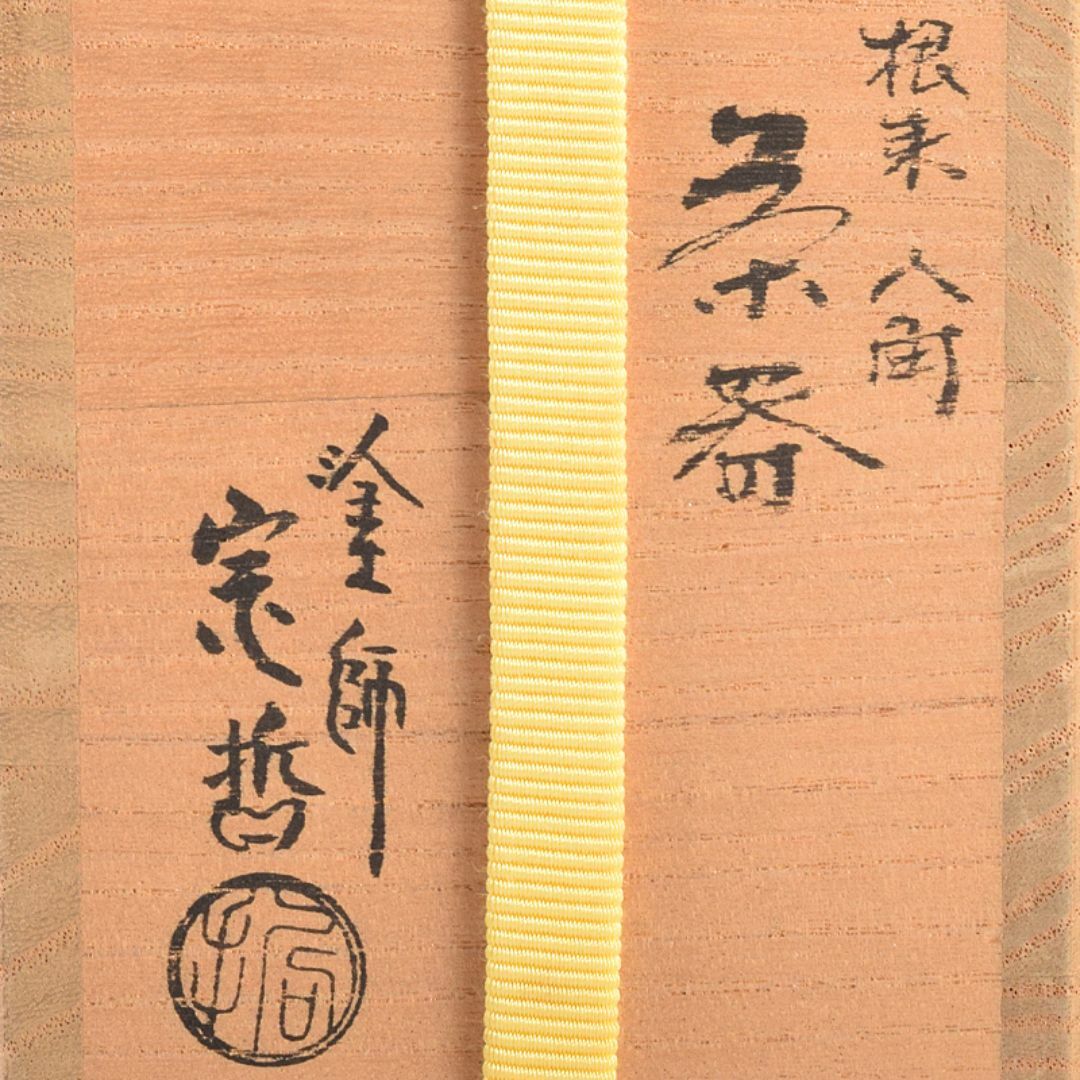 根来 八角
茶器
塗師
宗哲